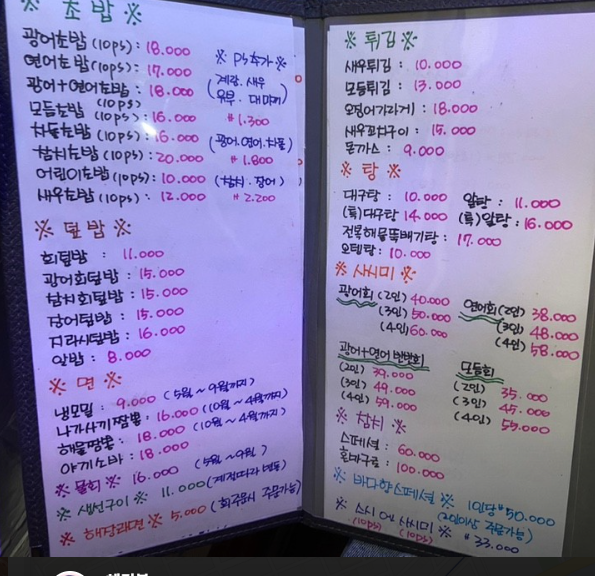 ※ 초밥 ※
광어초밥 (10ps) : 18.000
연어초밥 (10ps) : 17.000
광어+연어초밥 (10ps) : 18.000
모듬초밥 (10ps) : 16.000
차돌초밥 (10ps) : 16.000
참치초밥 (10ps) : 20.000
어린이초밥 (10ps) : 10.000
새우초밥 (10ps) : 12.000
※ ps추가 ※
(계란. 새우
유부. 대마끼)
₩ 1.300
(광어.연어.차돌)
₩ 1.800
(참치. 장어)
₩ 2.200
※ 덮밥 ※
회덮밥 : 11.000
광어회덮밥 : 15.000
참치회덮밥 : 15.000
장어덮밥 : 15.000
지라시덮밥 : 16.000
알밥 : 8.000
※ 면 ※
냉모밀 : 9.000 (5월~9월까지)
나가사끼짬뽕 : 16.000 (10월~4월까지)
해물짬뽕 : 18.000 (10월~4월까지)
야끼소바 : 18.000
※ 물회 ※ 16.000 (5월~9월)
※ 생선구이 ※ 11.000 (계절따라 변동)
※ 해장라면 ※ 5.000 (회주문시 주문가능)
※ 튀김 ※
새우튀김 : 10.000
모듬튀김 : 13.000
오징어가라게 : 18.000
새우꼬치구이 : 15.000
돈까스 : 9.000
※ 탕 ※
대구탕 : 10.000
(특)대구탕 14.000
전복해물뚝배기탕 : 17.000
오뎅탕 : 10.000
알탕 : 11.000
(특)알탕 : 16.000
※ 사시미 ※
광어회 (2인) 40.000
(3인) 50.000
(4인) 60.000
연어회 (2인) 38.000
(3인) 48.000
(4인) 58.000
광어+연어 반반회
(2인) 39.000
(3인) 49.000
(4인) 59.000
모듬회
(2인) 35.000
(3인) 45.000
(4인) 55.000
※ 참치 ※
스페셜 : 60.000
혼마구로 : 100.000
※ 바다향스페셜 ※ 1인당 ₩50.000
(2인이상 주문가능)
※ 스시 앤 사시미 ※ ₩33.000
(10ps) (10ps)